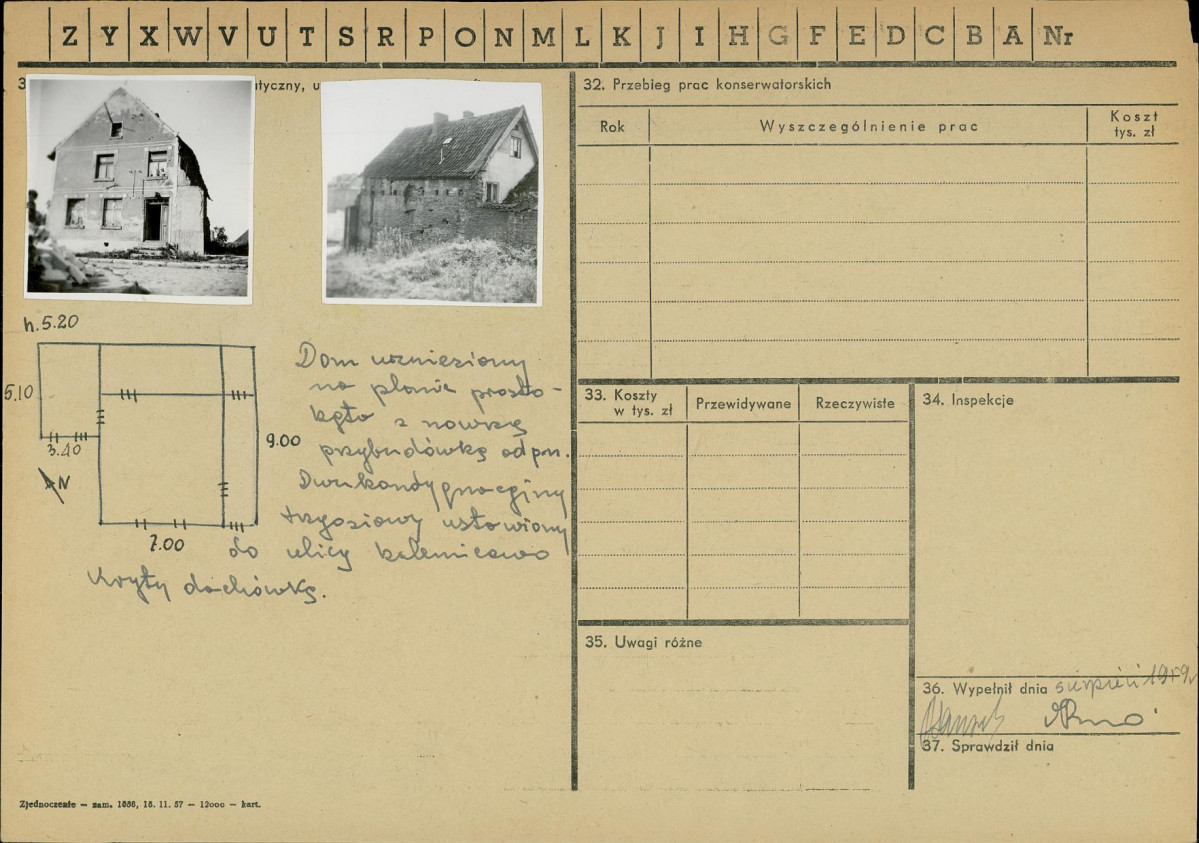 Z Y X W V U T S R P O N M L K J I H G F E D C B A Nr
3
atyczny, u
32. Przebieg prac konserwatorskich
Rok
Wyszczególnienie prac
Koszt
tys. zł
h. 5.20
5.10
3.40
N
9.00
7.00
Dom wzniesiony
na planie prosto-
kąta z nowszą
przybudówką od pn.
Dwukondygnacyjny
trzyosiowy ustawiony
do ulicy kalenicowo
Kryty dachówką.
33. Koszty
w tys. zł
Przewidywane
Rzeczywiste
34. Inspekcje
35. Uwagi różne
36. Wypełnił dnia sierpień 1959
37. Sprawdził dnia
Zjednoczenie — zam. 1686, 18. 11. 57 — 12000 — kart.